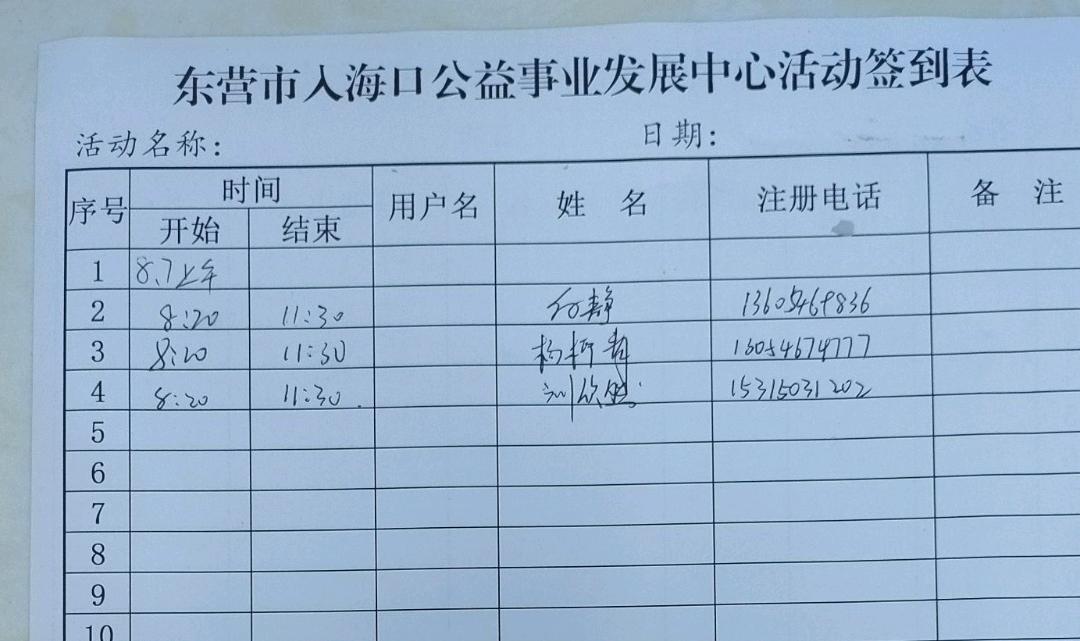 东营市入海口公益事业发展中心活动签到表
活动名称: 日期:
序号 时间 用户名 姓 名 注册电话 备 注
开始 结束
1 8.7上午
2 8:20 11:30 何静 13605469836
3 8:20 11:30 杨柯青 13054674777
4 8:20 11:30 刘欣然 15315031202
5
6
7
8
9
10